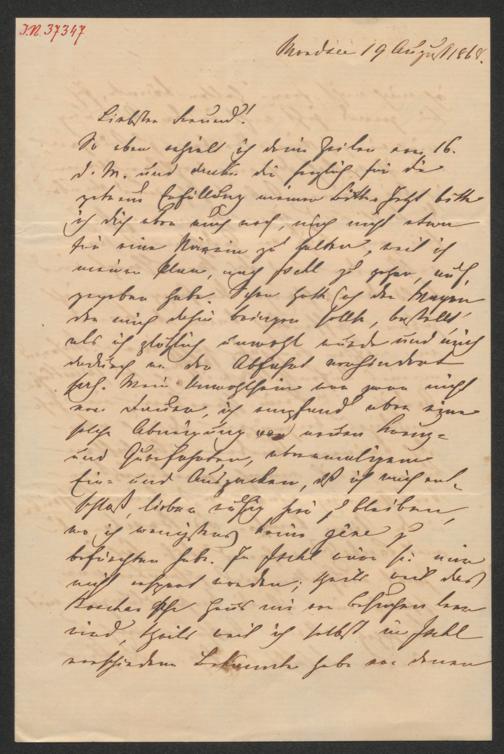 I.N. 37347
Mondsee 19 August 1868.
Liebster Freund!
So eben erhielt ich deine Zeilen vom 16.
d. M. und danke dir herzlich für die
getreue Erfüllung meiner Bitte. Jetzt bitte
ich dich aber auch noch, mich nicht etwa
für eine Närrin zu halten, weil ich
meinen Plan, nach Ischl zu gehen, auf-
gegeben habe. Schon hatte ich den Wagen
der mich dahin bringen sollte, bestellt,
als ich plötzlich unwohl wurde und mich
dadurch an der Abfahrt verhindert
sah. Mein Unwohlsein war zwar nicht
von Dauer, ich empfand aber eine
solche Abneigung vor neuen Kreuz-
und Querfahrten, abermaligem
Ein- und Auspacken, daß ich mich ent-
schloß, lieber ruhig hier zu bleiben,
wo ich wenigstens keine gêne zu
befürchten habe. In Ischl wäre sie mir
nicht erspart worden; theils weil das
Haus mir von
sind, theils weil ich selbst in Ischl
verschiedene Bekannte habe von denen